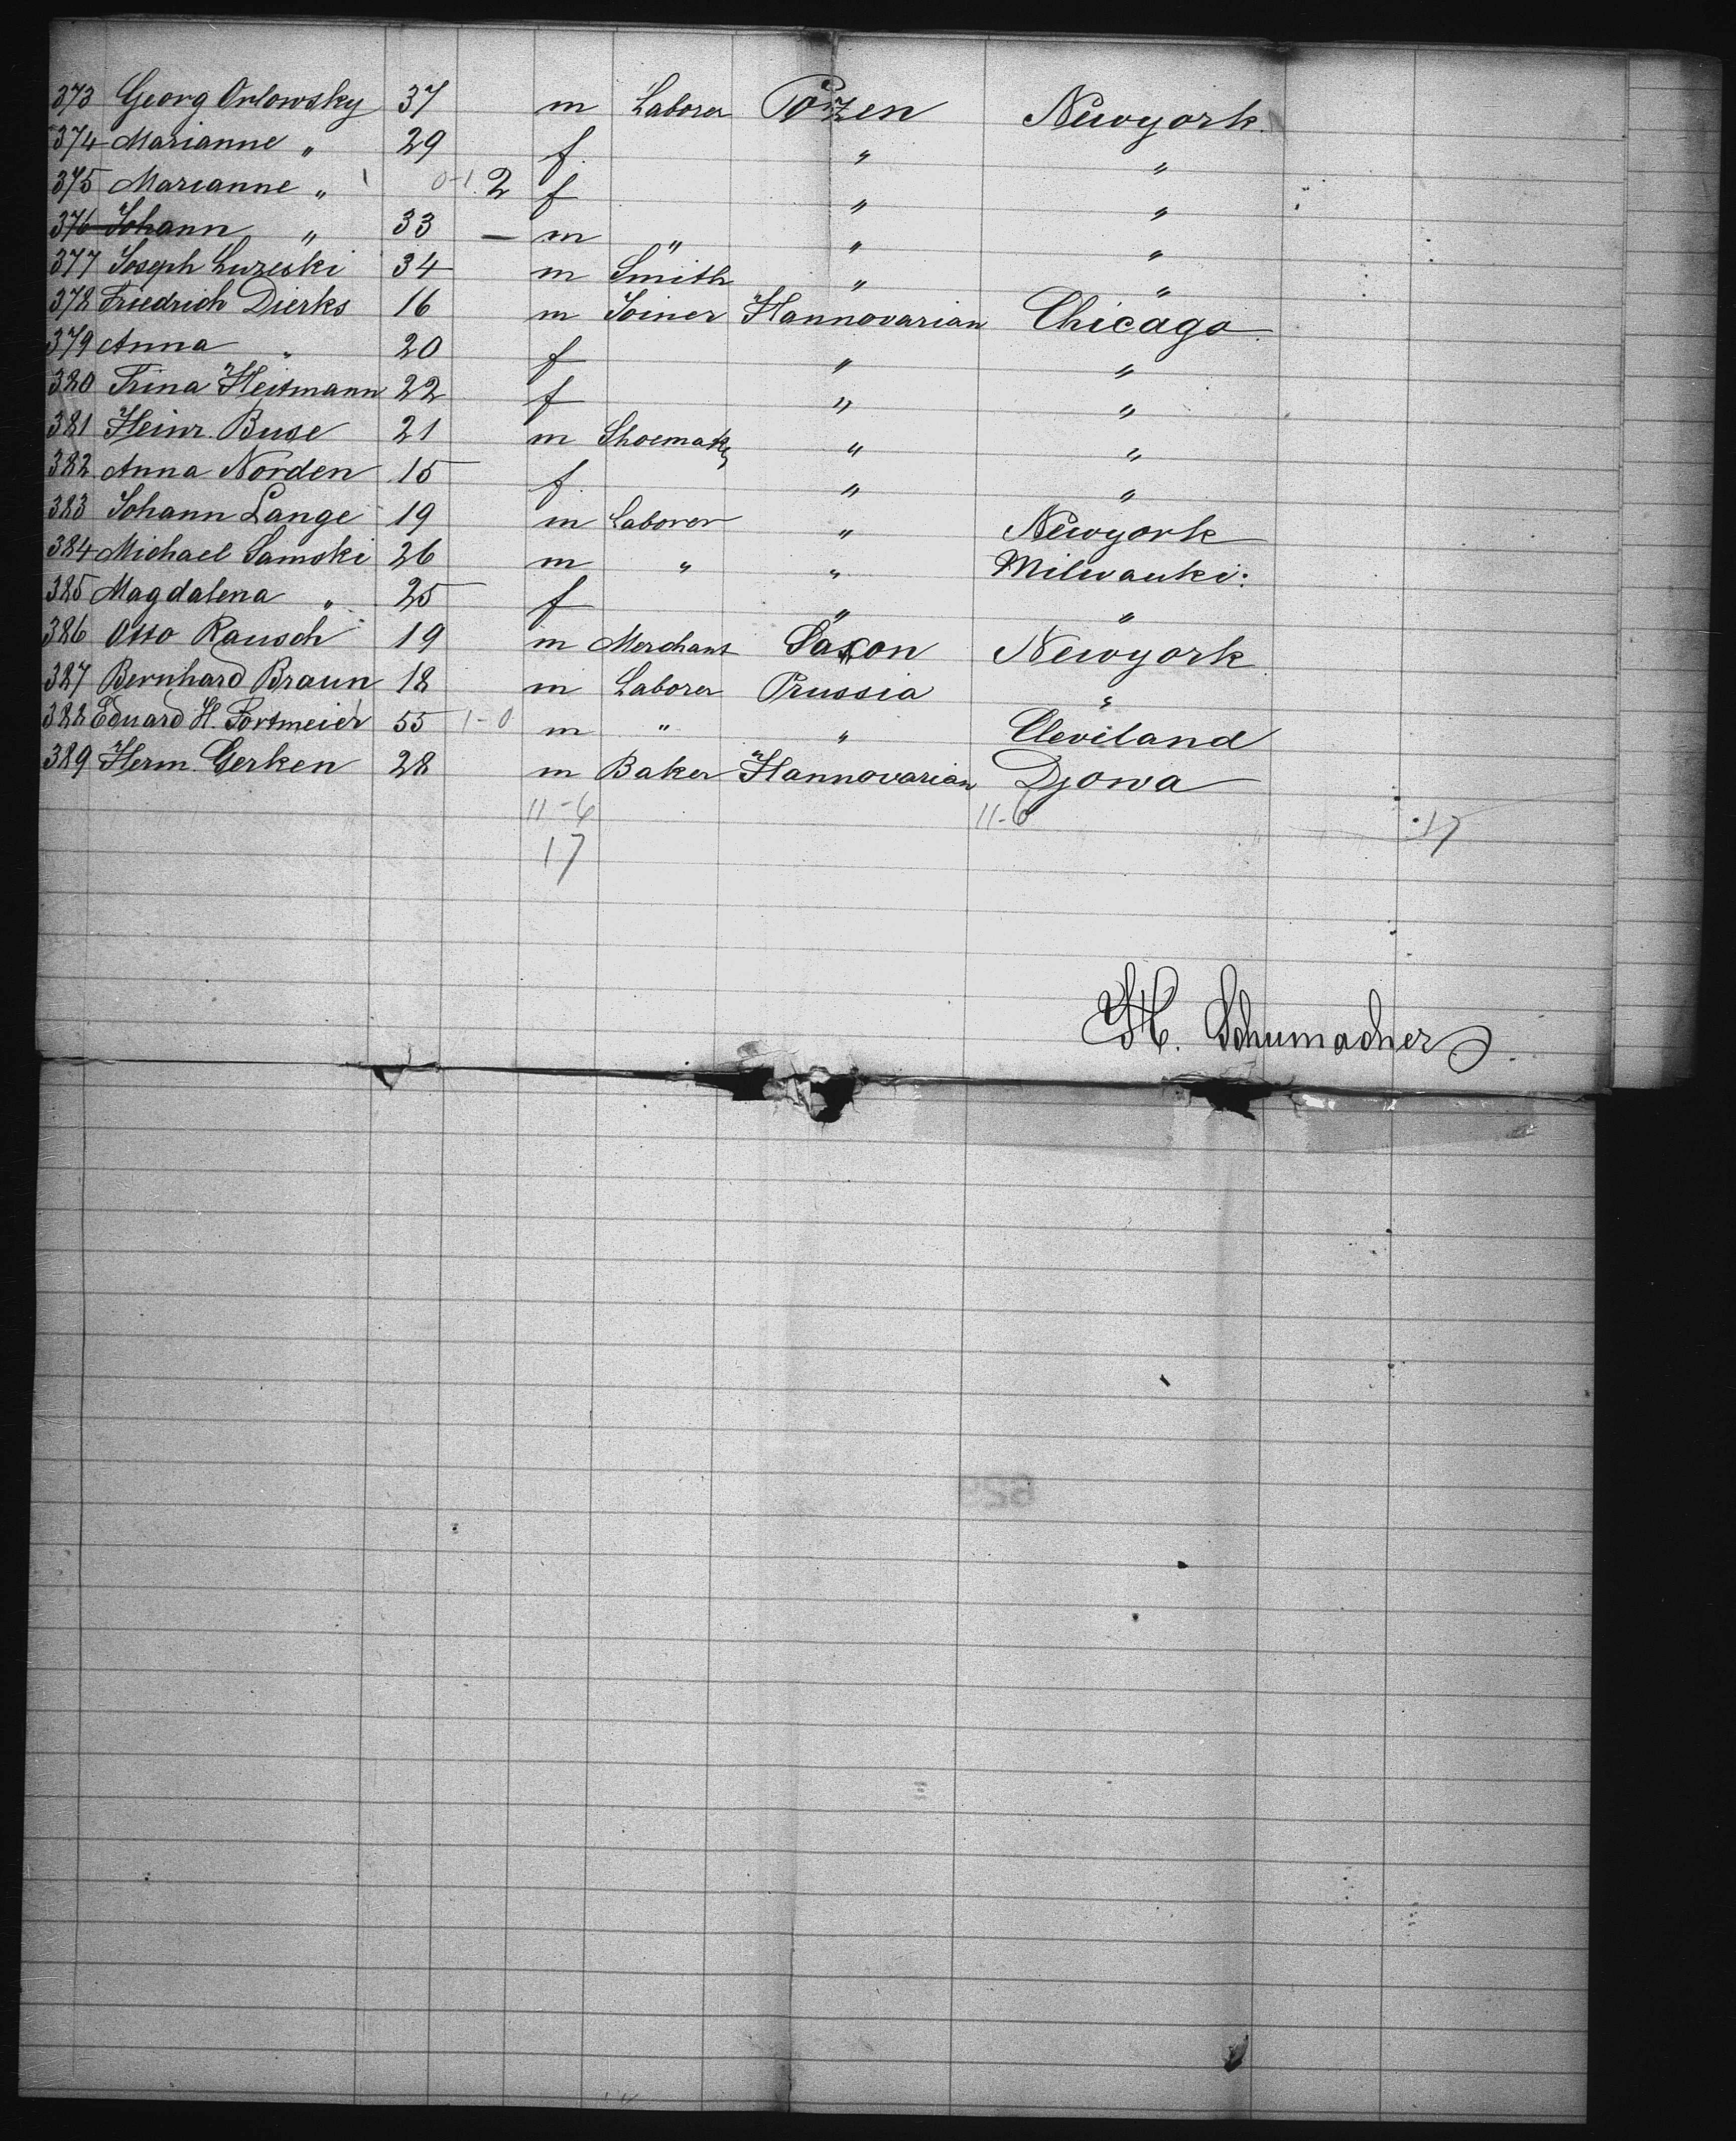 373 Georg Orlowsky 37 m Laborer Pozen Newyork.
374 Marianne " 29 f. " "
375 Marianne " 0-1 2 f " "
376 Johann " 33 — m " " "
377 Joseph Luzeski 34 m Smith " "
378 Friedrich Dierks 16 m Joiner Hannovarian Chicago.
379 Anna " 20 f " "
380 Trina Heitmann 22 f " "
381 Heinr. Buse 21 m Shoemaker " "
382 Anna Norden 15 f. " "
383 Johann Lange 19 m Laborer " Newyork
384 Michael Samski 26 m " " Milwauki:
385 Magdalena " 25 f " "
386 Otto Rausch 19 m Merchant Saxon Newyork
387 Bernhard Braun 18 m Laborer Prussia "
388 Eduard H. Portmeier 55 1-0 m " " Cleviland
389 Herm. Gerken 28 m Baker Hannovarian Djowa
11-6 11-6 17
17
H. Schumacher